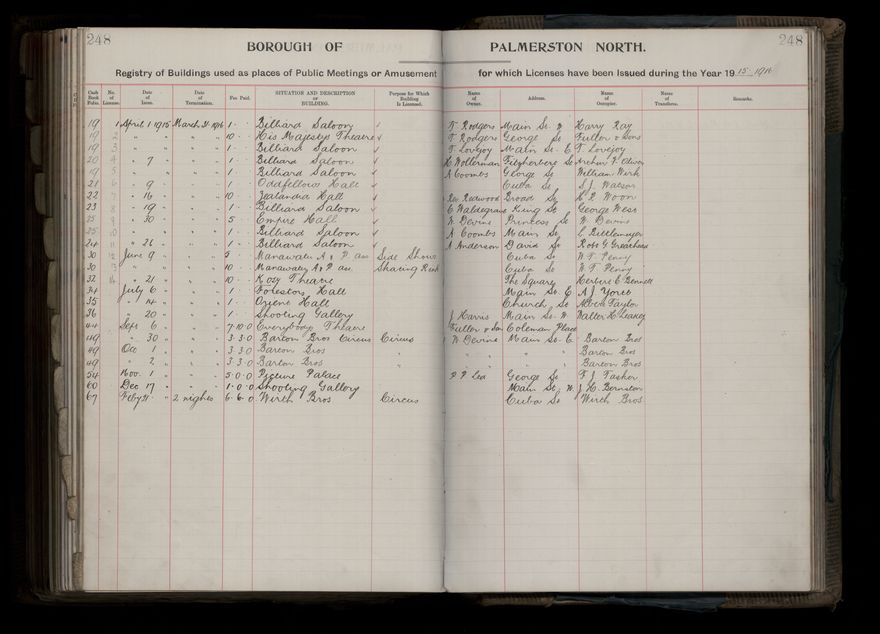 248
BOROUGH OF
PALMERSTON NORTH.
248
Registry of Buildings used as places of Public Meetings or Amusement for which Licenses have been Issued during the Year 1915-1916
Cash Book Folio. No. of License. Date of Issue. Date of Termination. Fee Paid. SITUATION AND DESCRIPTION OF BUILDING. Purpose for Which Building Is Licensed. Name of Owner. Address. Name of Occupier. Name of Transferee. Remarks.
19 1 April 1 1915 March 31 1916 1 Billiard Saloon T Rodgers Main St Harry Ray
19 2 " " " " 10 His Majestys Theatre T Rodgers George St Fuller & Sons
19 3 " " " " 1 Billiard Saloon T Lovejoy Main St E T Lovejoy
20 4 " 7 " " 1 Billiard Saloon H Wollerman Fitzherbert St Arthur Oliver
19 5 " " " " 1 Billiard Saloon A Coombs George St William
21 6 " 9 " " 1 Oddfellows Hall Cuba St S J Watson
22 " 16 " " 10 Zealandia Hall Rev Redwood Broad St Woon
23 8 " 19 " " 1 Billiard Saloon C Waldegrave King St George West
25 " 30 " " 5 Empire Hall W Devine Princess St W Devine
25 " " " " 1 Billiard Saloon A Coombs Main St C Dittlemeyer
24 11 " 26 " " 1 Billiard Saloon A Anderson David St Robt G
30 12 June 9 " " 5 Manawatu A & P ass Side Shows Cuba St W F Penny
30 13 " " " " 10 Manawatu A & P ass Skating Rink Cuba St W F Penny
32 14 " 21 " " 10 Kosy Theatre The Square Herbert E Bennett
34 July 6 " " 1 Foresters Hall Main St E A J
35 " 14 " " 1 Orient Hall Church St Albert Taylor
36 " 20 " " 1 Shooting Gallery J Harris Main St W Walter H
44 Sept 6 " " 7.10.0 Everybodys Theatre Fuller & Son Coleman Place
49 " 30 " " 3.3.0 Barton Bros Circus Circus W Devine Main St E Barton Bros
49 Oct 1 " " 3.3.0 Barton Bros " " " " " Barton Bros
49 " 2 " " 3.3.0 Barton Bros " " " " " Barton Bros
54 Nov. 1 " " 5.0.0 Picture Palace P P Ltd George St F J
60 Dec 17 " " 1.0.0 Shooting Gallery Main St W. J H
67 Feby 21 " 2 nights 6.6.0 Wirth Bros Circus Cuba St Wirth Bros